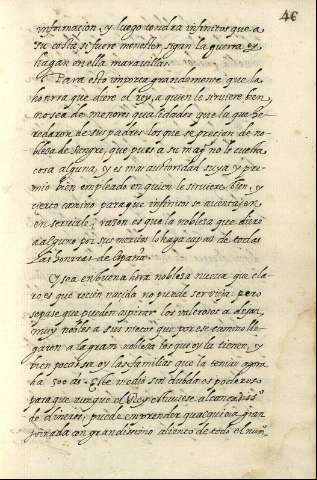 46
informacion, y luego tendra infinitos que a
su costa si fuere menester sigan la guerra, y
hagan en ella maravillas.
Para esto importa grandemente que la
honrra que diere el rey, a quien le sirviere bien,
no sea de menores qualidades que la que he
redaron de sus padres los que se precian de no
bleza de sangre, que pues a su magd no le cuesta
cosa alguna, y es mas autoridad suya y pre
mio bien empleado en quien le sirviere bien, y
cierto camino para que infinitos se
en servirle; razon es que la nobleza que diere
a alguno por sus meritos lo haga capaz de todas
las honrras de España.
O sea en buena hora nobleza nueva que cla
ro es que recien nacida no puede ser vieja: pero
sepase que pueden aspirar los valerosos a dejar
muy nobles a sus nietos que por ese camino lle
garon a la gran nobleza los que oy la tienen, y
bien pocas ay oy las familias que la tenian agora
ha 500 as. Este medio sin dubda es poderoso
para que aunque el Rey estuviese alcançadiss.o
de dinero, puede emprender qualquiera gran
jornada con grandissimo aliento de todo el